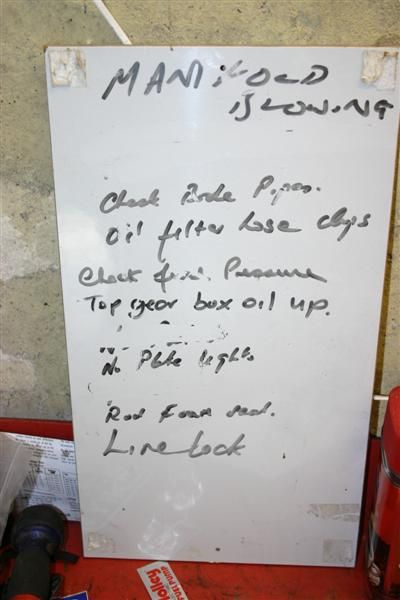 MANifOLD
BLOWING
Check Brake Pipes.
Oil filter hose clips
Check fuel Pressure
Top gear box oil up.
No Plate lights
Rad Foam seal.
Line Lock
Holley
FUEL PUMP